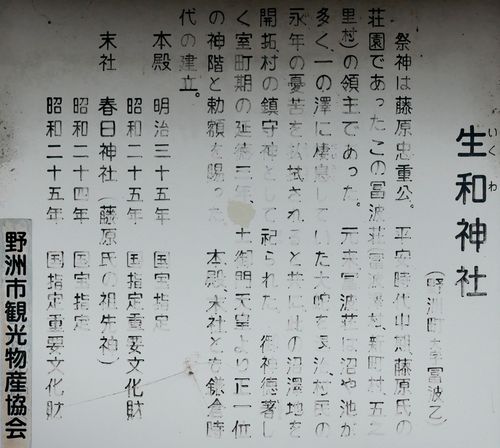 生和神社
いくわ
(野洲町大字冨波乙)
祭神は藤原忠重公。平安時代山城藤原氏の
荘園であったこの冨波荘(冨波沢村、新町村、五之
里村)の領主であった。元来冨波荘は沼や池が
多く、一の澤に棲息していた大蛇を退治、村民の
永年の憂苦を払拭されると共に此の沼澤地を
開拓、村の鎮守神として祀られた。御神徳著し
く室町期の延徳三年、土御門天皇より正一位
の神階と勅額を賜った。本殿、末社とも鎌倉時
代の建立。
本殿 明治三十五年 国宝指定
昭和二十五年 国指定重要文化財
末社 春日神社(藤原氏の祖先神)
昭和二十四年 国宝指定
昭和二十五年 国指定重要文化財
野洲市観光物産協会